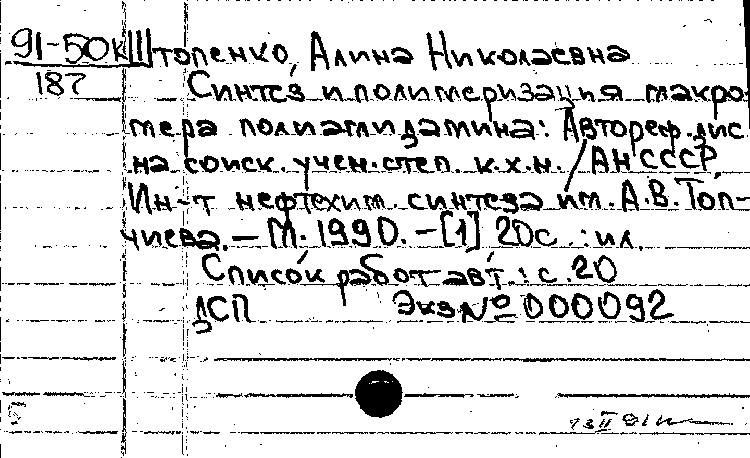 91-50к Штопенко, Алина Николаевна
187
Синтез и полимеризация макро-
мера полиаглидамина: Автореф. дис.
на соиск. учен. степ. к.х.н. / АН СССР,
Ин-т нефтехим. синтеза им. А.В. Топ-
чиева. — М. 1990. — [1] 20с. : ил.
Список работ авт.: с. 20
ДСП Экз № 000092